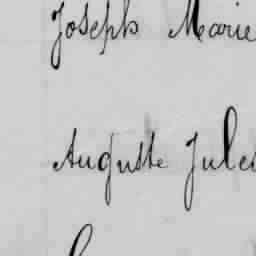 Joseph Marie
Auguste Jules